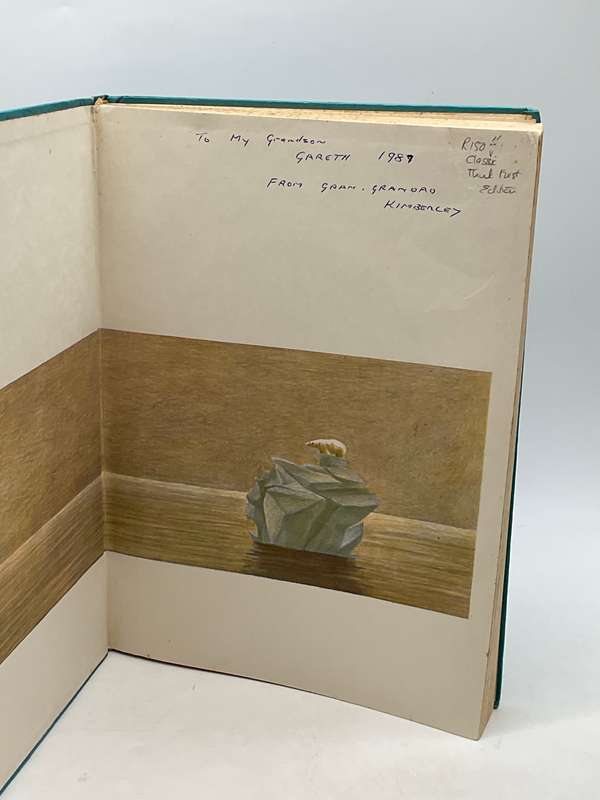 To My Grandson
GARETH 1987
FROM GRAN. GRANDAD
KIMBERLEY
R150
Classic
Third First
Edition